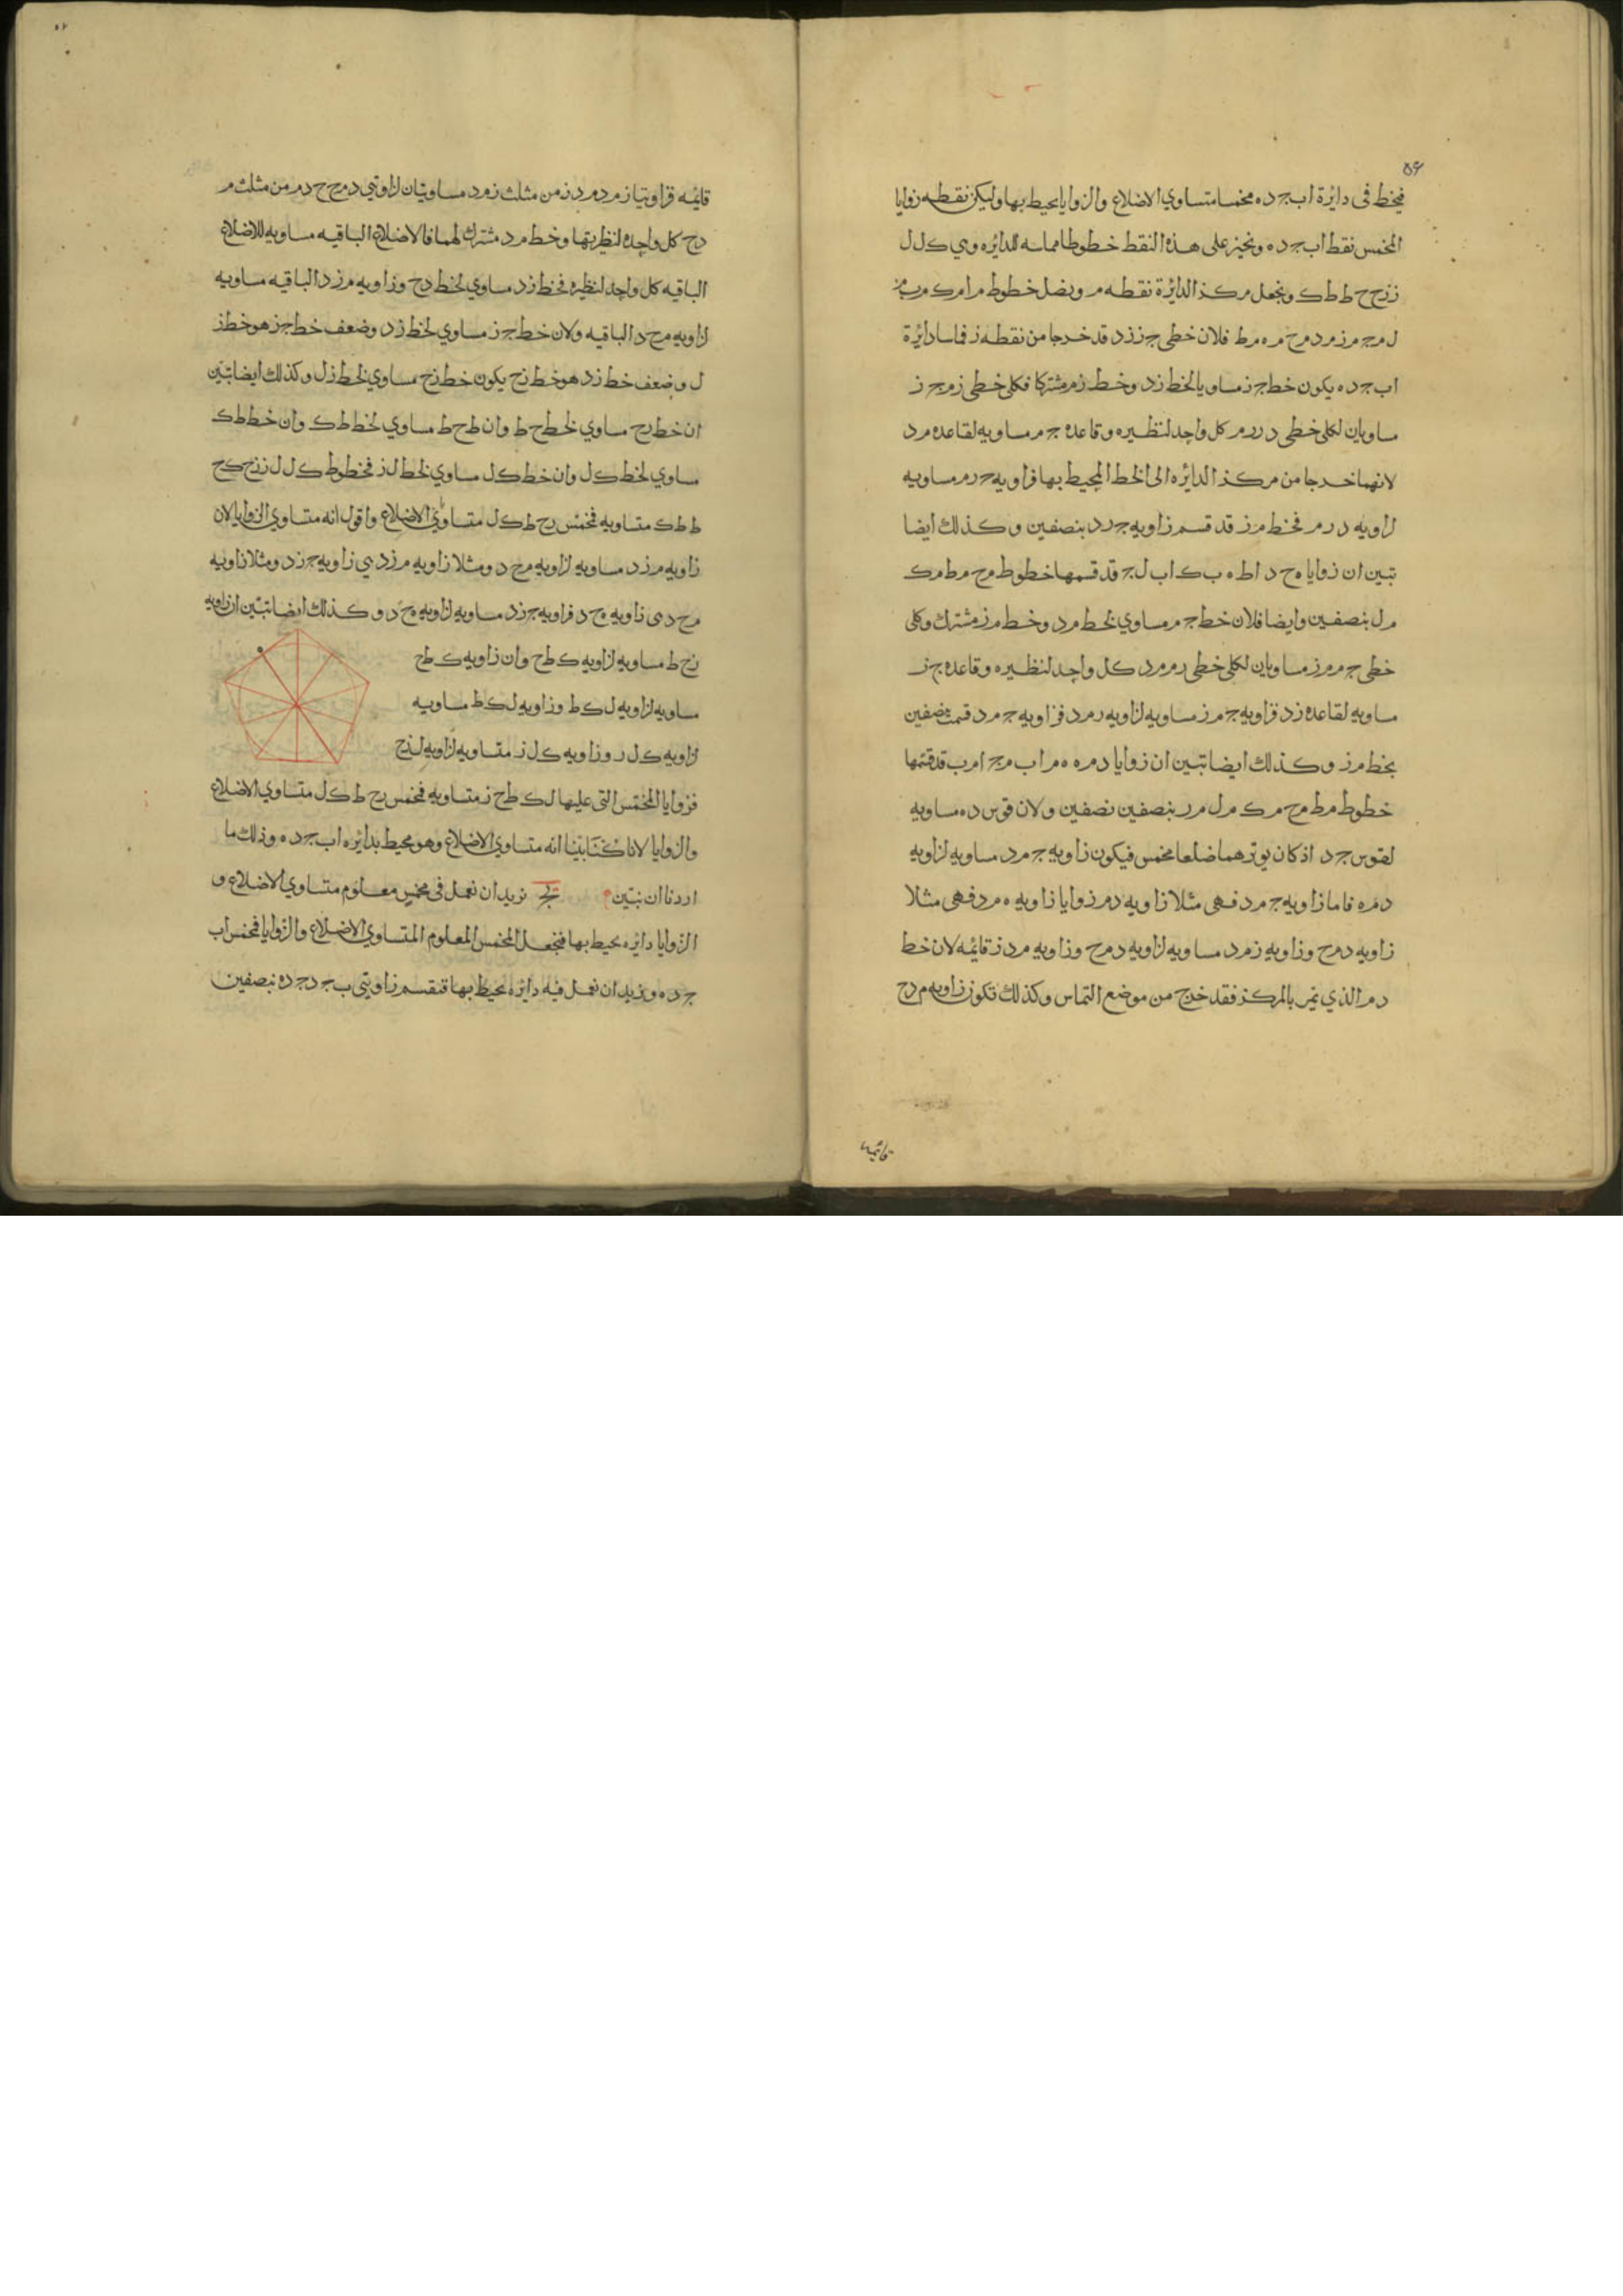 ٥٦
فنخط فى دايرة اب جـ د ه مخمسا متساوي الاضلاع والزوايا يحيط بها وليكن نقطه زوايا
المخمس نقط اب جـ د ه ونجيز على هذه النقط خطوطا مماسه للدايره وهي ك ل ل
ز زح ح ط ط ك ونجعل مركز الدايرة نقطه م ونصل خطوط م ا م ك م ب م
ل م جـ م ز م د م ح م ه م ط فلان خطى جـ ز ز د قد خرجا من نقطه ز فماسا دايرة
اب جـ د ه يكون خط جـ ز مساويا لخط ز د وخط ز م مشتركا فكلى خطى ز م جـ ز
مساويان لكلى خطى د ر ر م كل واحد لنظيره وقاعده جـ م مساويه لقاعده م د
لانهما خرجا من مركز الدايره الى الخط المحيط بها فزاويه جـ ر م مساويه
لزاويه د ر م فخط م ز قد قسم زاويه جـ ر د بنصفين وكذلك ايضا
تبين ان زوايا ه ح د ا ط ه ب ك ا ب ل جـ قد قسمها خطوط م ح م ط م ك
م ل بنصفين وايضا فلان خط جـ م مساوي لخط م د وخط م ز مشترك وكلى
خطى جـ م م ز مساويان لكلى خطى ر م م د كل واحد لنظيره وقاعده جـ ز
مساويه لقاعده ز د فزاويه جـ م ز مساويه لزاويه ر م د فزاويه جـ م د قسمت بنصفين
بخط م ز وكذلك ايضا تبين ان زوايا د م ه ه م ا ب م جـ ا م ب قد قسمها
خطوط م ط م ح م ك م ل م ر بنصفين نصفين ولان قوس د ه مساويه
لقوس جـ د اذ كان يوترهما ضلعا مخمس فيكون زاويه جـ م د مساويه لزاويه
د م ه فاما زاويه جـ م د فهى مثلا زاويه د م ز وايا زاويه ه م د فهى مثلا
زاويه د م ح وزاويه ز م د مساويه لزاويه د م ح وزاويه م د ز قايمه لان خط
د م الذي يمر بالمركز فقد خرج من موضع التماس وكذلك تكون زاويه م د ح
قايمه
قايمه فزاويتا ز م د م د ز من مثلث ز م د مساويتان لزاويتي د م ح ح د م من مثلث م
د ح كل واحده لنظيرتها وخط م د مشترك لهما فالاضلاع الباقيه مساويه للاضلاع
الباقيه كل واحد لنظيره فخط ز د مساوي لخط د ح وزاويه م ز د الباقيه مساويه
لزاويه م ح د الباقيه ولان خط جـ ز مساوي لخط ز د وضعف خط جـ ز هو خط ز
ل وضعف خط ز د هو خط ز ح يكون خط ز ح مساوي لخط ز ل وكذلك ايضا تبين
ان خط ر ح مساوي لخط ح ط وان ط ح ط مساوي لخط ط ك وان خط ط ك
مساوي لخط ك ل وان خط ك ل مساوي لخط ل ز فخطوط ك ل ل ز ز ح ك ح
ط ط ك متساويه فمخمس ر ح ط ك ل متساوي الاضلاع واقول انه متساوي الزوايا لان
زاويه م ز د مساويه لزاويه م ح د ومثلا زاويه م ز د هي زاويه جـ ز د ومثلا زاويه
م ح د هى زاويه ه ح د فزاويه جـ ز د مساويه لزاويه ه ح د وكذلك ايضا تبين ان زاويه
ز ح ط مساويه لزاويه ك ط ح وان زاويه ك ط ح
مساويه لزاويه ل ك ط وزاويه ل ك ط مساويه
لزاويه ك ل ر وزاويه ك ل ز متساويه لزاويه ل ز ح
فزوايا المخمس التى عليها ل ك ط ح ز متساويه فمخمس ر ح ط ك ل متساوي الاضلاع
والزوايا لانا كنا بينا انه متساوي الاضلاع وهو محيط بدايره اب جـ د ه وذلك ما
اردنا ان نبين يج نريد ان نعمل فى مخمس معلوم متساوي الاضلاع و
الزوايا دايره يحيط بها فنجعل المخمس المعلوم المتساوي الاضلاع والزوايا مخمس اب
جـ د ه ونريد ان نعمل فيه دايره يحيط بها فنقسم زاويتى ب جـ د جـ د ه بنصفين